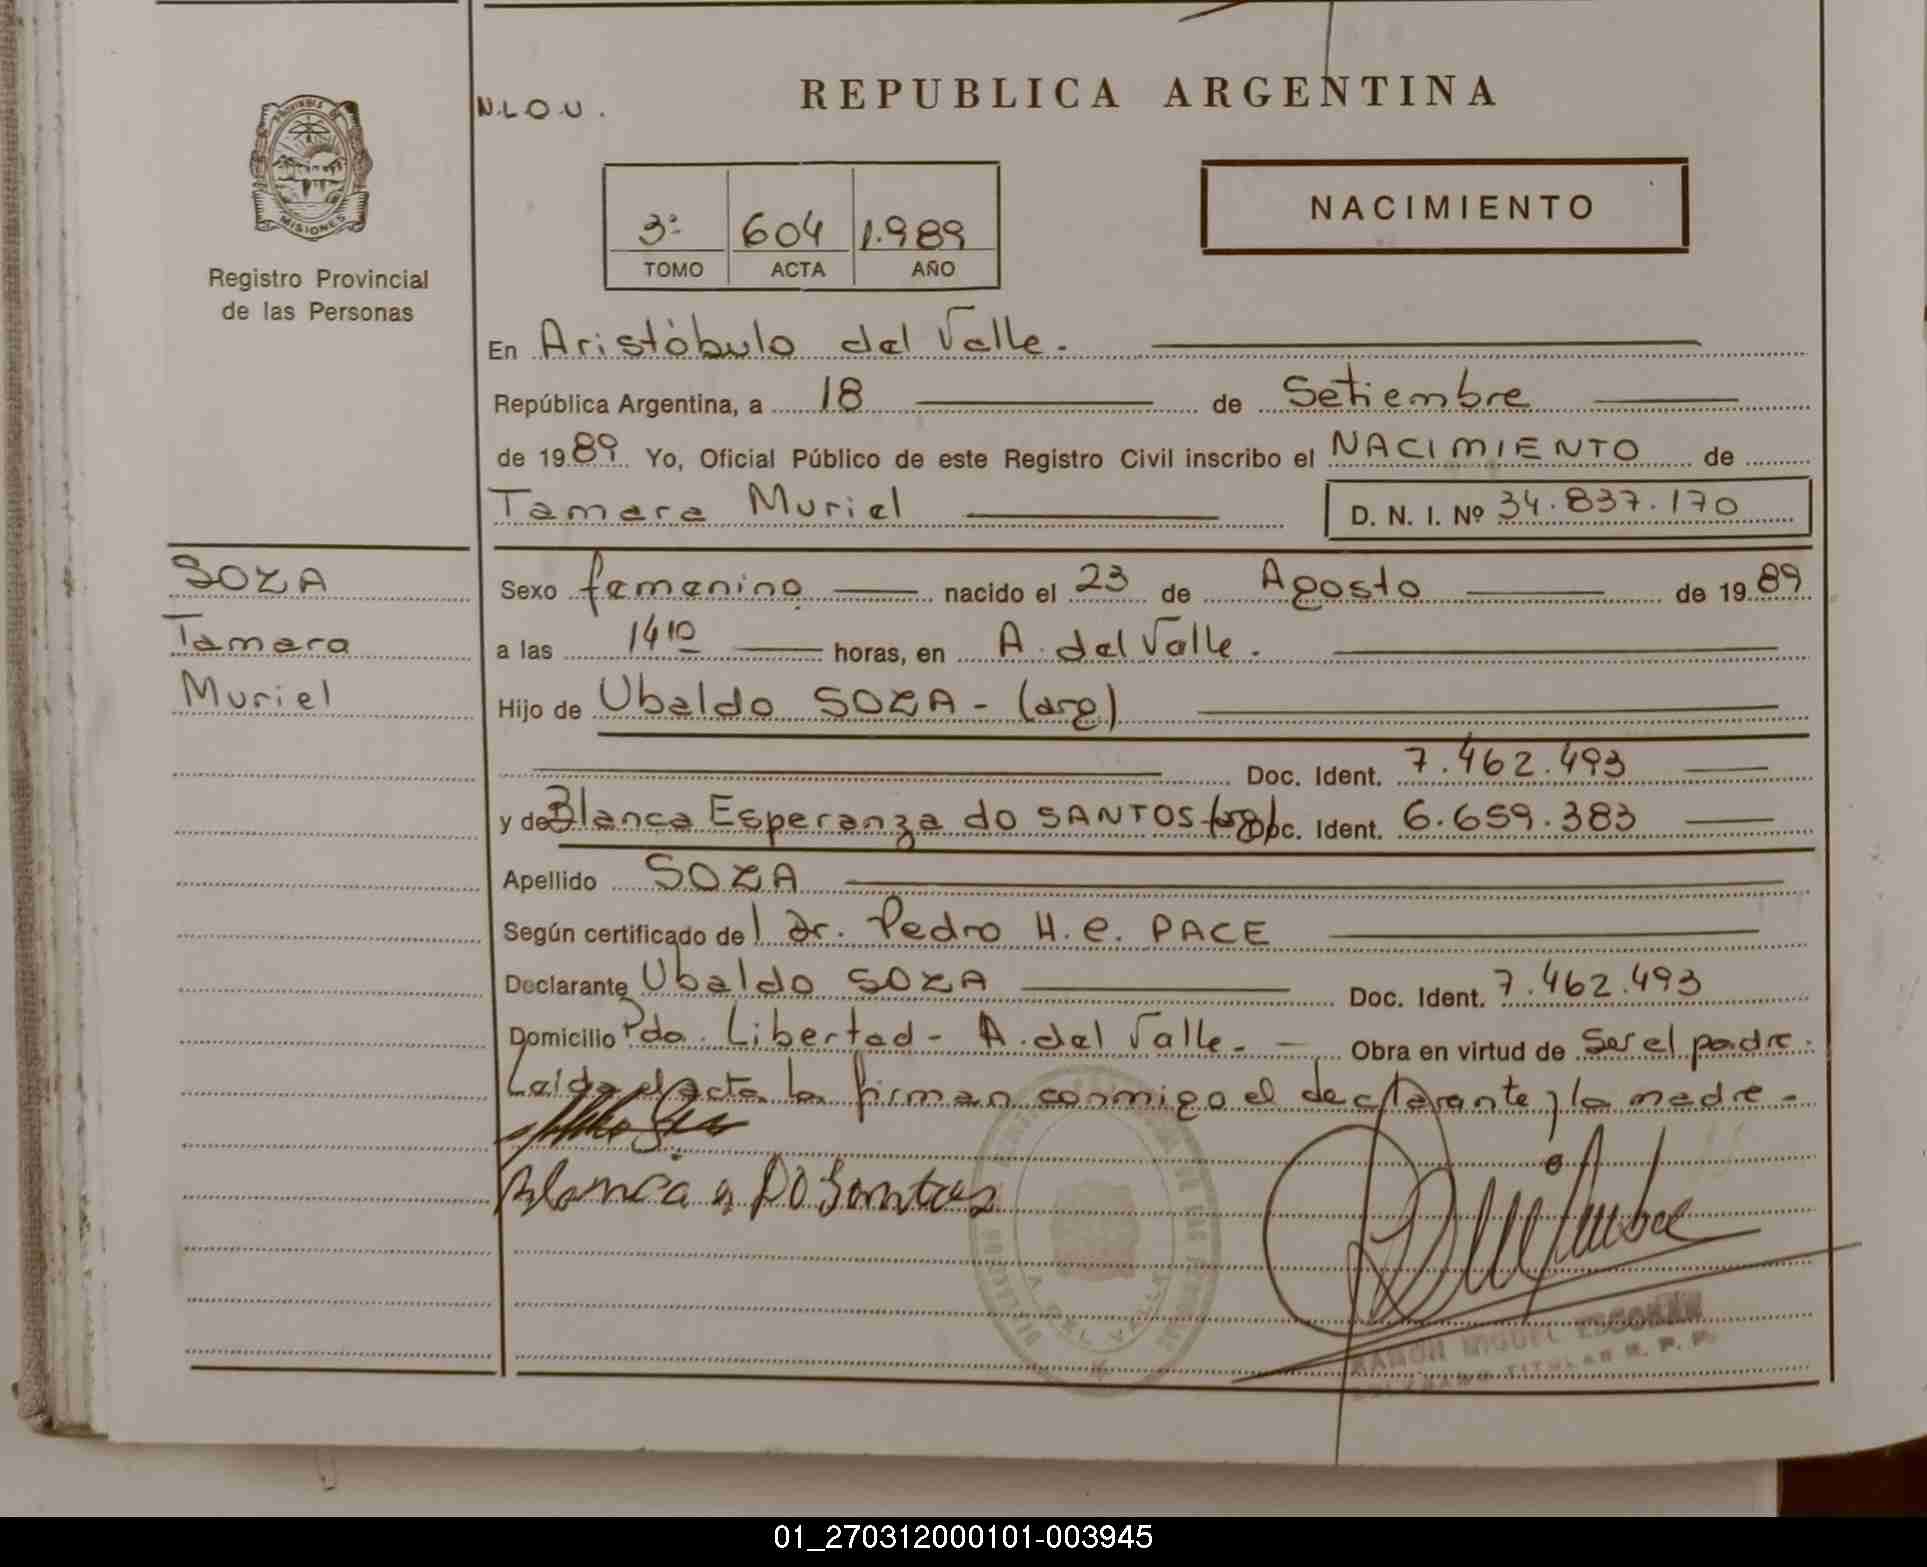 N.L.O.U.
REPUBLICA ARGENTINA
PROVINCIA DE
MISIONES
Registro Provincial
de las Personas
3º 604 1.989
TOMO ACTA AÑO
NACIMIENTO
En Aristóbulo del Valle.
República Argentina, a 18 de Setiembre
de 1989 Yo, Oficial Público de este Registro Civil inscribo el NACIMIENTO de
Tamara Muriel D. N. I. Nº 34.837.170
SOZA
Tamara
Muriel
Sexo femenino nacido el 23 de Agosto de 1989
a las 14 10 horas, en A. del Valle.
Hijo de Ubaldo SOZA - (arg)
Doc. Ident. 7.462.493
y de Blanca Esperanza do SANTOS (arg) Doc. Ident. 6.659.383
Apellido SOZA
Según certificado del Dr. Pedro H. e. PACE
Declarante Ubaldo SOZA Doc. Ident. 7.462.493
Domicilio Pdo. Libertad - A. del Valle. - Obra en virtud de Ser el padre.
Leída el acta la firman conmigo el declarante y la madre -
Blanca e DO Santos
A. DEL VALLE
RAMON MIGUEL ESCOBAR
TITULAR R. P. P.
01_270312000101-003945